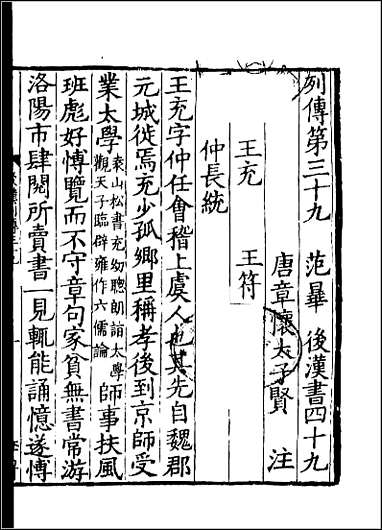 列傳第三十九 范曄 後漢書四十九
唐章懷太子賢 注
王充 王符
仲長統
王充字仲任會稽上虞人也其先自魏郡
元城徙焉充少孤鄉里稱孝後到京師受
業太學袁山松書充幼聰朗詣太學觀天子臨辟雍作六儒論師事扶風
班彪好愽覽而不守章句家貧無書常游
洛陽市肆閱所賣書一見輒能誦憶遂愽